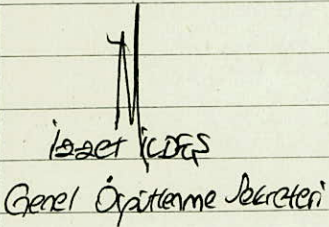 İzzet İÇDEŞ
Genel Örgütlenme Sekreteri